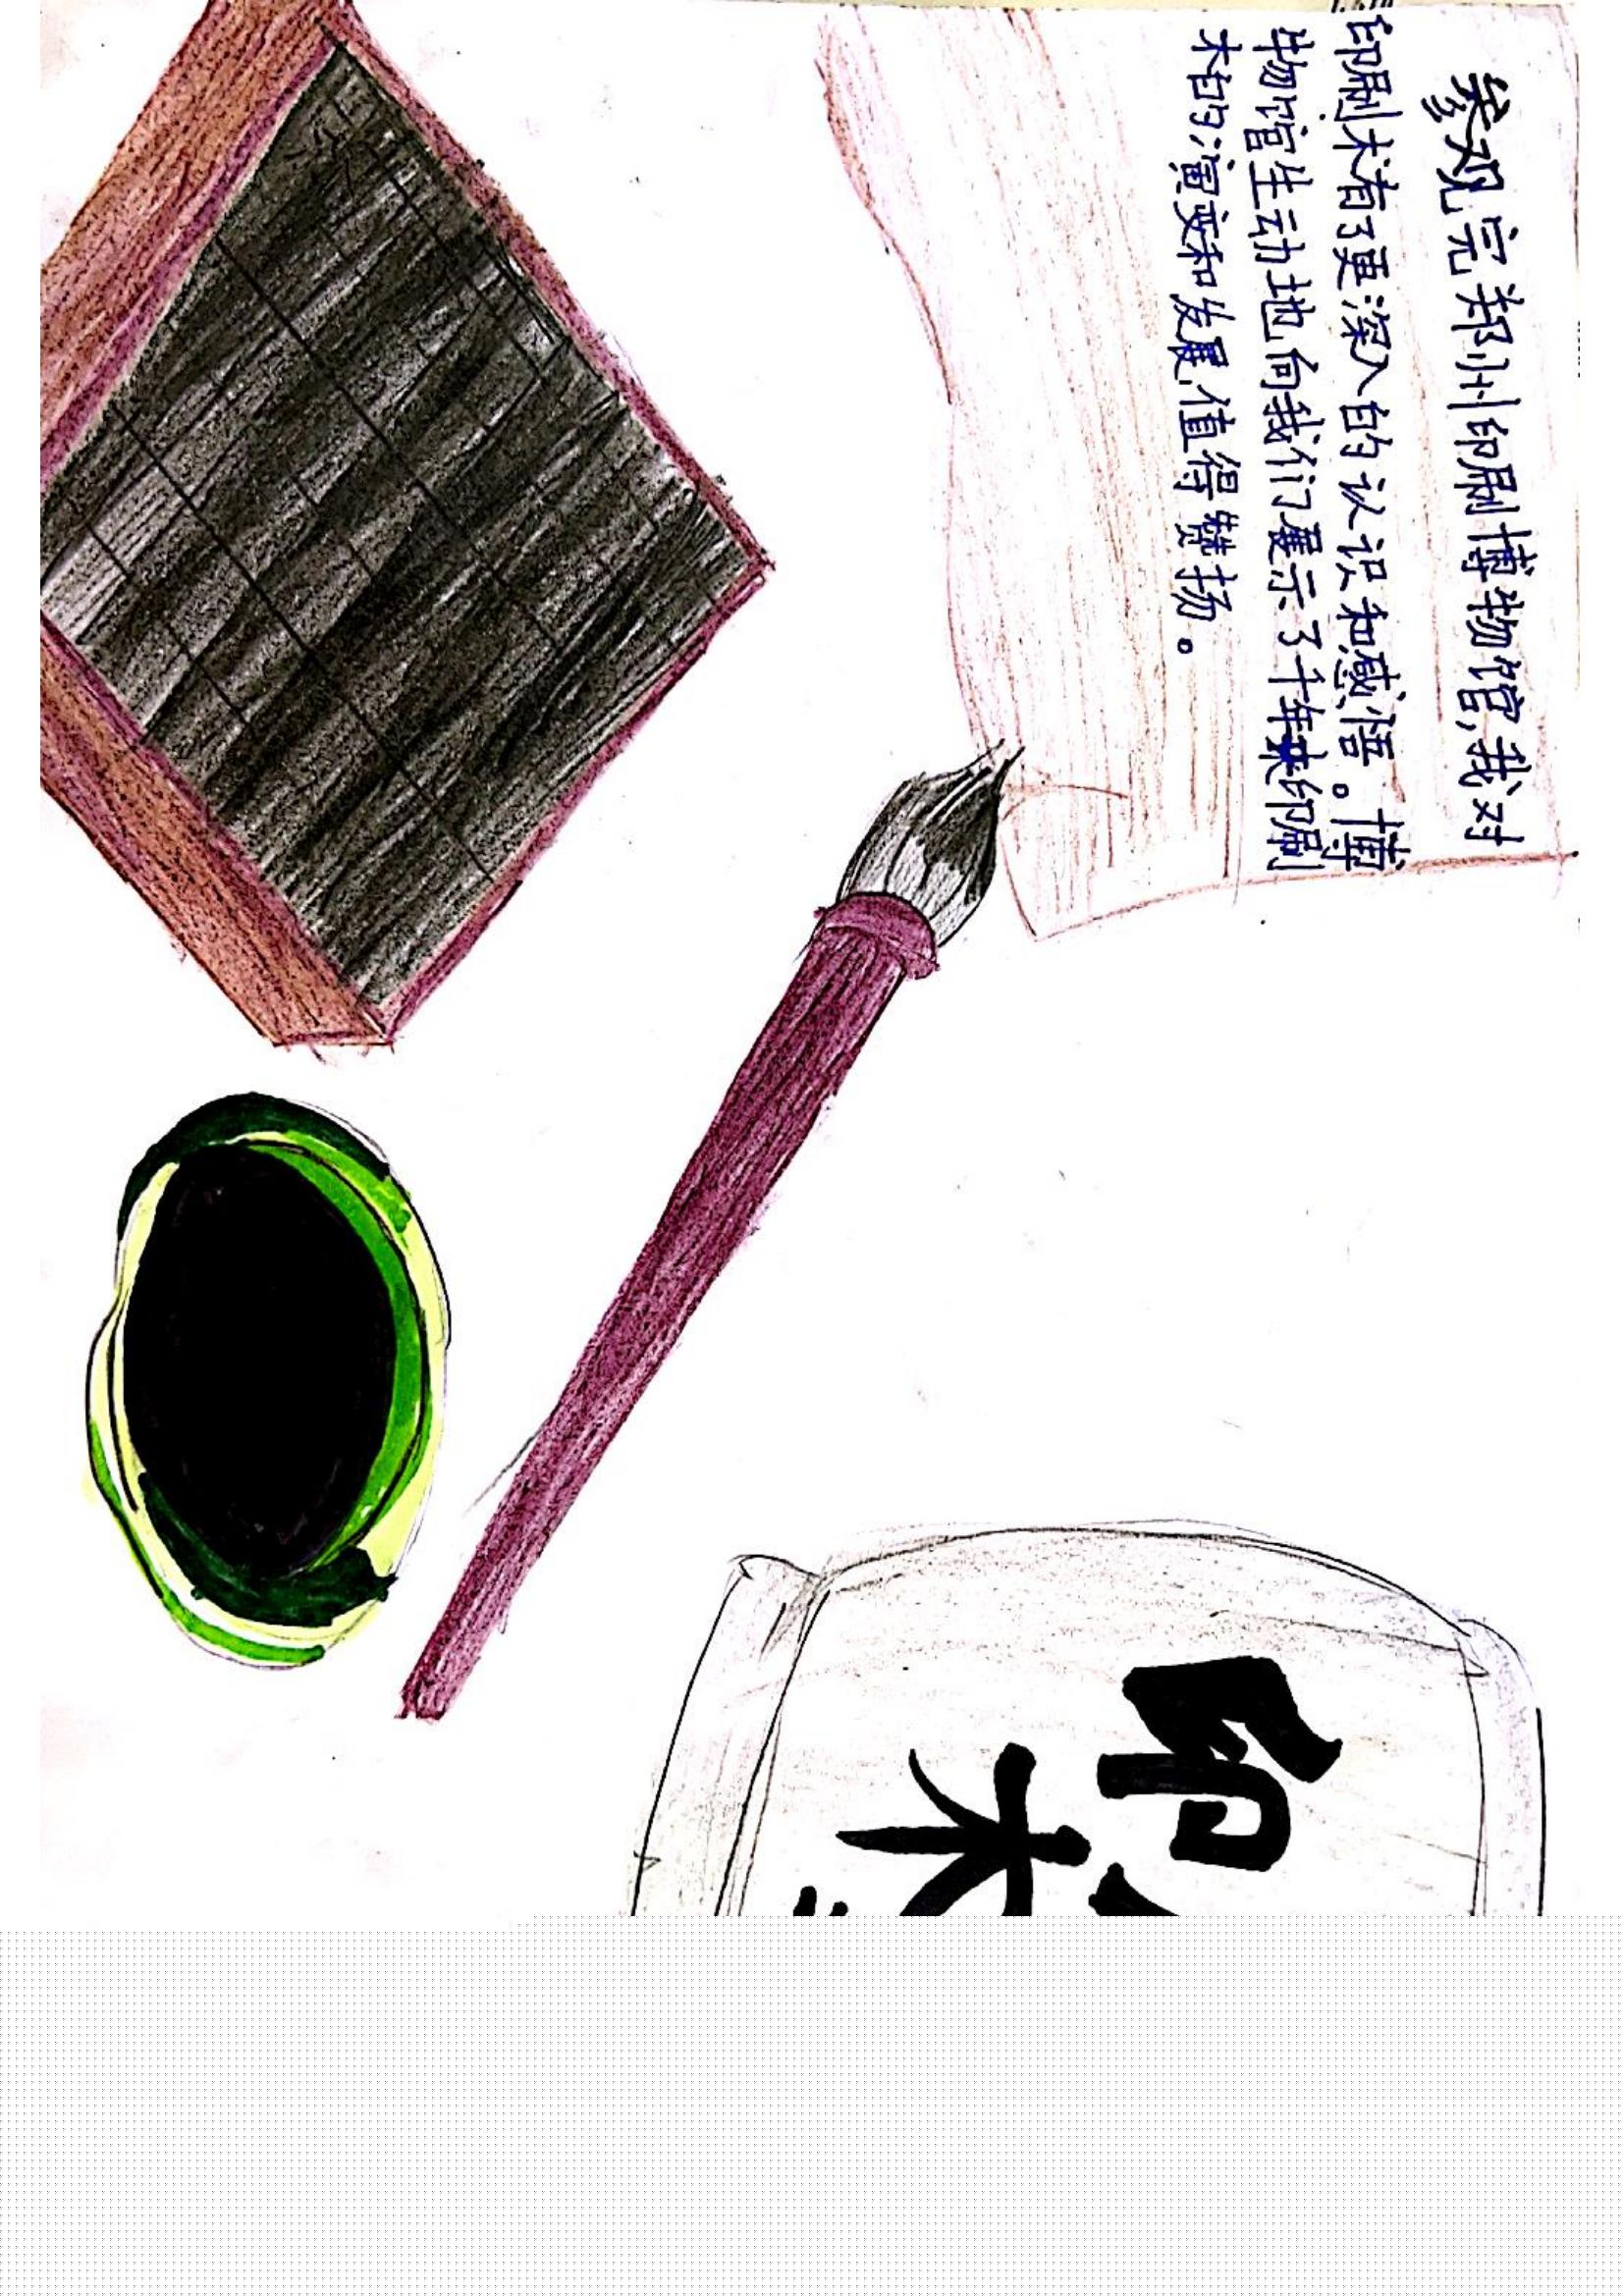 参观完郑州印刷博物馆,我对
印刷术有了更深入的认识和感悟。博
物馆生动地向我们展示了千年来印刷
术的演变和发展,值得赞扬。
印
术